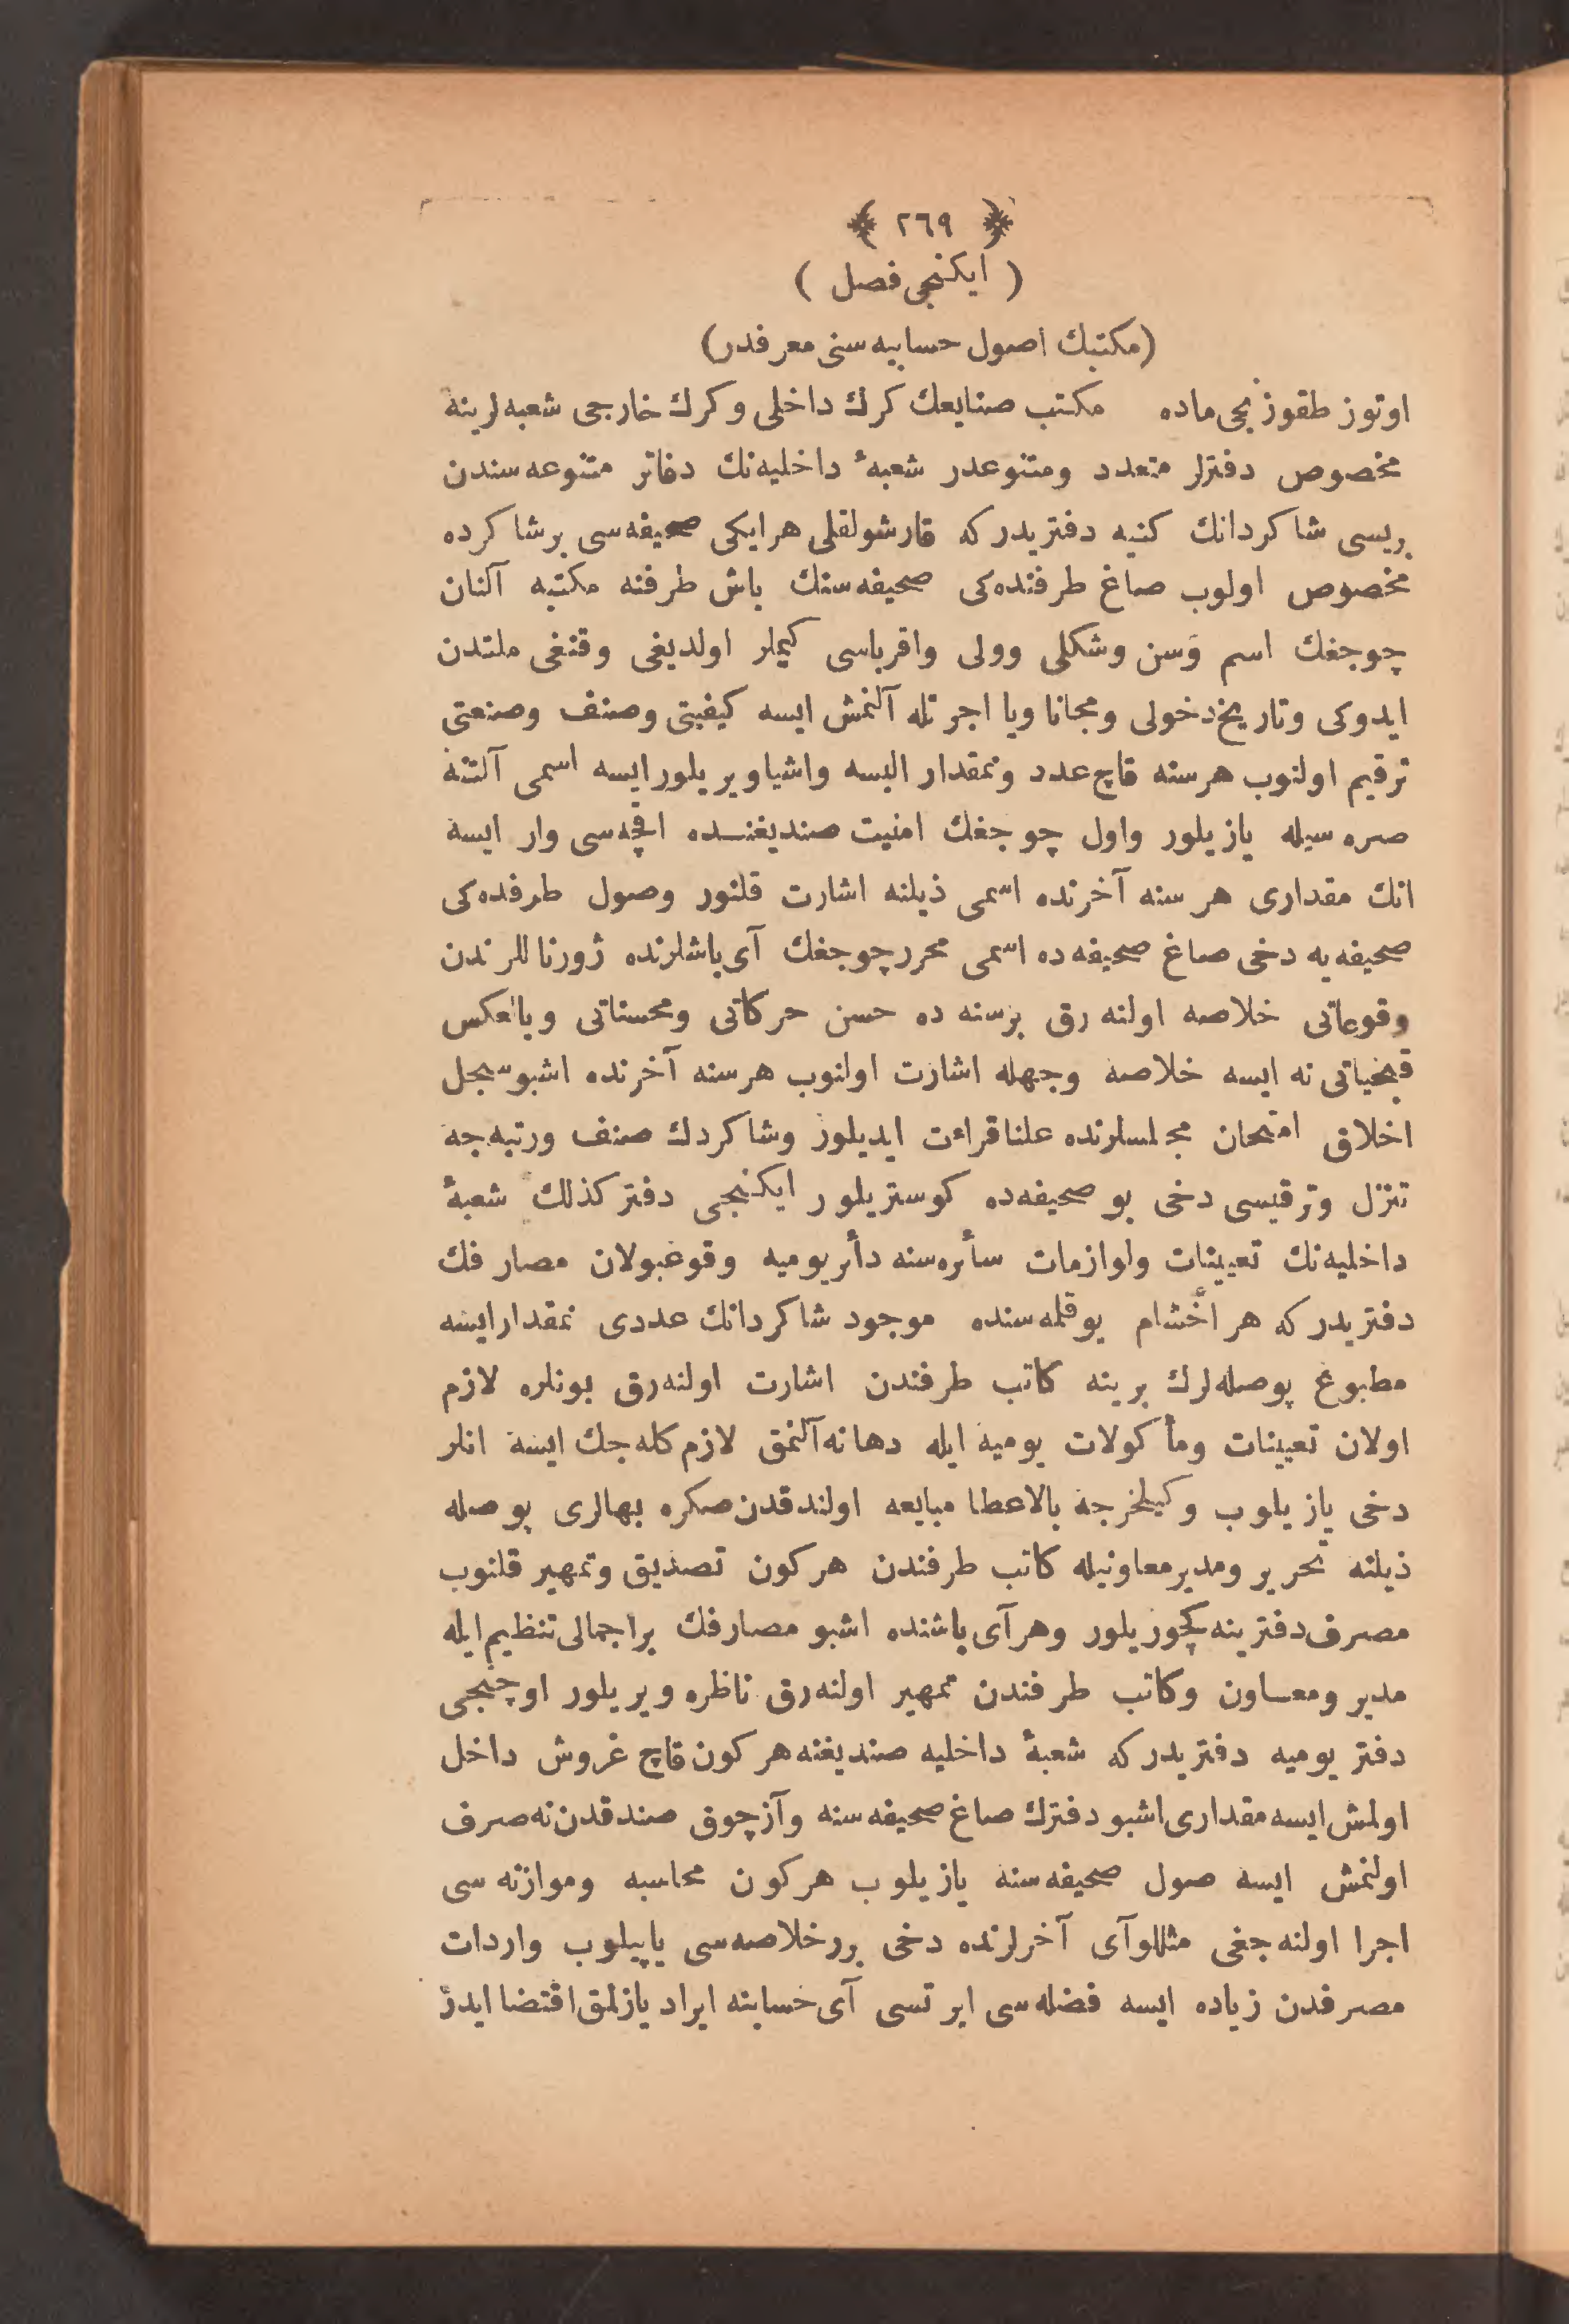 ﴿ ٢٦٩ ﴾
( ايكنجى فصل )
(مكتبك اصول حسابيه سنى معرفدر)
اوتوز طقوزنجى ماده مكتب صنايعك كرك داخلى وكرك خارجى شعبه لرينه
مخصوص دفترلر متعدد ومتنوعدر شعبۀ داخليه نك دفاتر متنوعه سندن
بريسى شاكردانك كنيه دفتريدر كه قارشولقلى هر ايكى صحيفه سى بر شاكرده
مخصوص اولوب صاغ طرفنده كى صحيفه سنك باش طرفنه مكتبه آلنان
چوجغك اسم وَسن وشكلى وولى واقرباسى كيملر اولديغى وقنغى ملتدن
ايدوكى وتاريخ دخولى ومجانا ويا اجرتله آلنمش ايسه كيفيتى وصنف وصنعتى
ترقيم اولنوب هر سنه قاچ عدد ونمقدار البسه واشيا ويريلور ايسه اسمى آلتنه
صره سيله يازيلور واول چوجغك امنيت صنديغنده اقچه سى وار ايسه
انك مقدارى هر سنه آخرنده اسمى ذيلنه اشارت قلنور وصول طرفده كى
صحيفه يه دخى صاغ صحيفه ده اسمى محرر چوجغك آى باشلرنده ژورناللرندن
وقوعاتى خلاصه اولنه رق برسنه ده حسن حركاتى ومحسناتى وبالعكس
قبحياتى نه ايسه خلاصه وجهله اشارت اولنوب هر سنه آخرنده اشبو سجل
اخلاق امتحان مجلسلرنده علنا قراءت ايديلور وشاكردك صنف ورتبه جه
تنزل وترقيسى دخى بو صحيفه ده كوستريلور ايكنجى دفتر كذلك شعبۀ
داخليه نك تعيينات ولوازمات سأره سنه دأر يوميه وقوعبولان مصارفك
دفتريدر كه هر اخشام يوقلمه سنده موجود شاكردانك عددى نمقدار ايسه
مطبوع پوصله لرك برينه كاتب طرفندن اشارت اولنه رق بونلره لازم
اولان تعيينات ومأكولات يوميه ايله دها نه آلنمق لازم كله جك ايسه انلر
دخى يازيلوب وكيلخرجه بالاعطا مبايعه اولندقدن صكره بهالرى پوصله
ذيلنه تحرير ومدير معاونيله كاتب طرفندن هر كون تصديق وتمهير قلنوب
مصرف دفترينه كچوريلور وهر آى باشنده اشبو مصارفك بر اجمالى تنظيم ايله
مدير ومعاون وكاتب طرفندن تمهير اولنه رق ناظره ويريلور اوچنجى
دفتر يوميه دفتريدر كه شعبۀ داخليه صنديغنه هر كون قاچ غروش داخل
اولمش ايسه مقدارى اشبو دفترك صاغ صحيفه سنه وآز چوق صندقدن نه صرف
اولنمش ايسه صول صحيفه سنه يازيلوب هر كون محاسبه وموازنه سى
اجرا اولنه جغى مثللو آى آخرلرنده دخى بررخلاصه سى ياپيلوب واردات
مصرفدن زياده ايسه فضله سى ايرتسى آى حسابنه ايراد يازلمق اقتضا ايدر